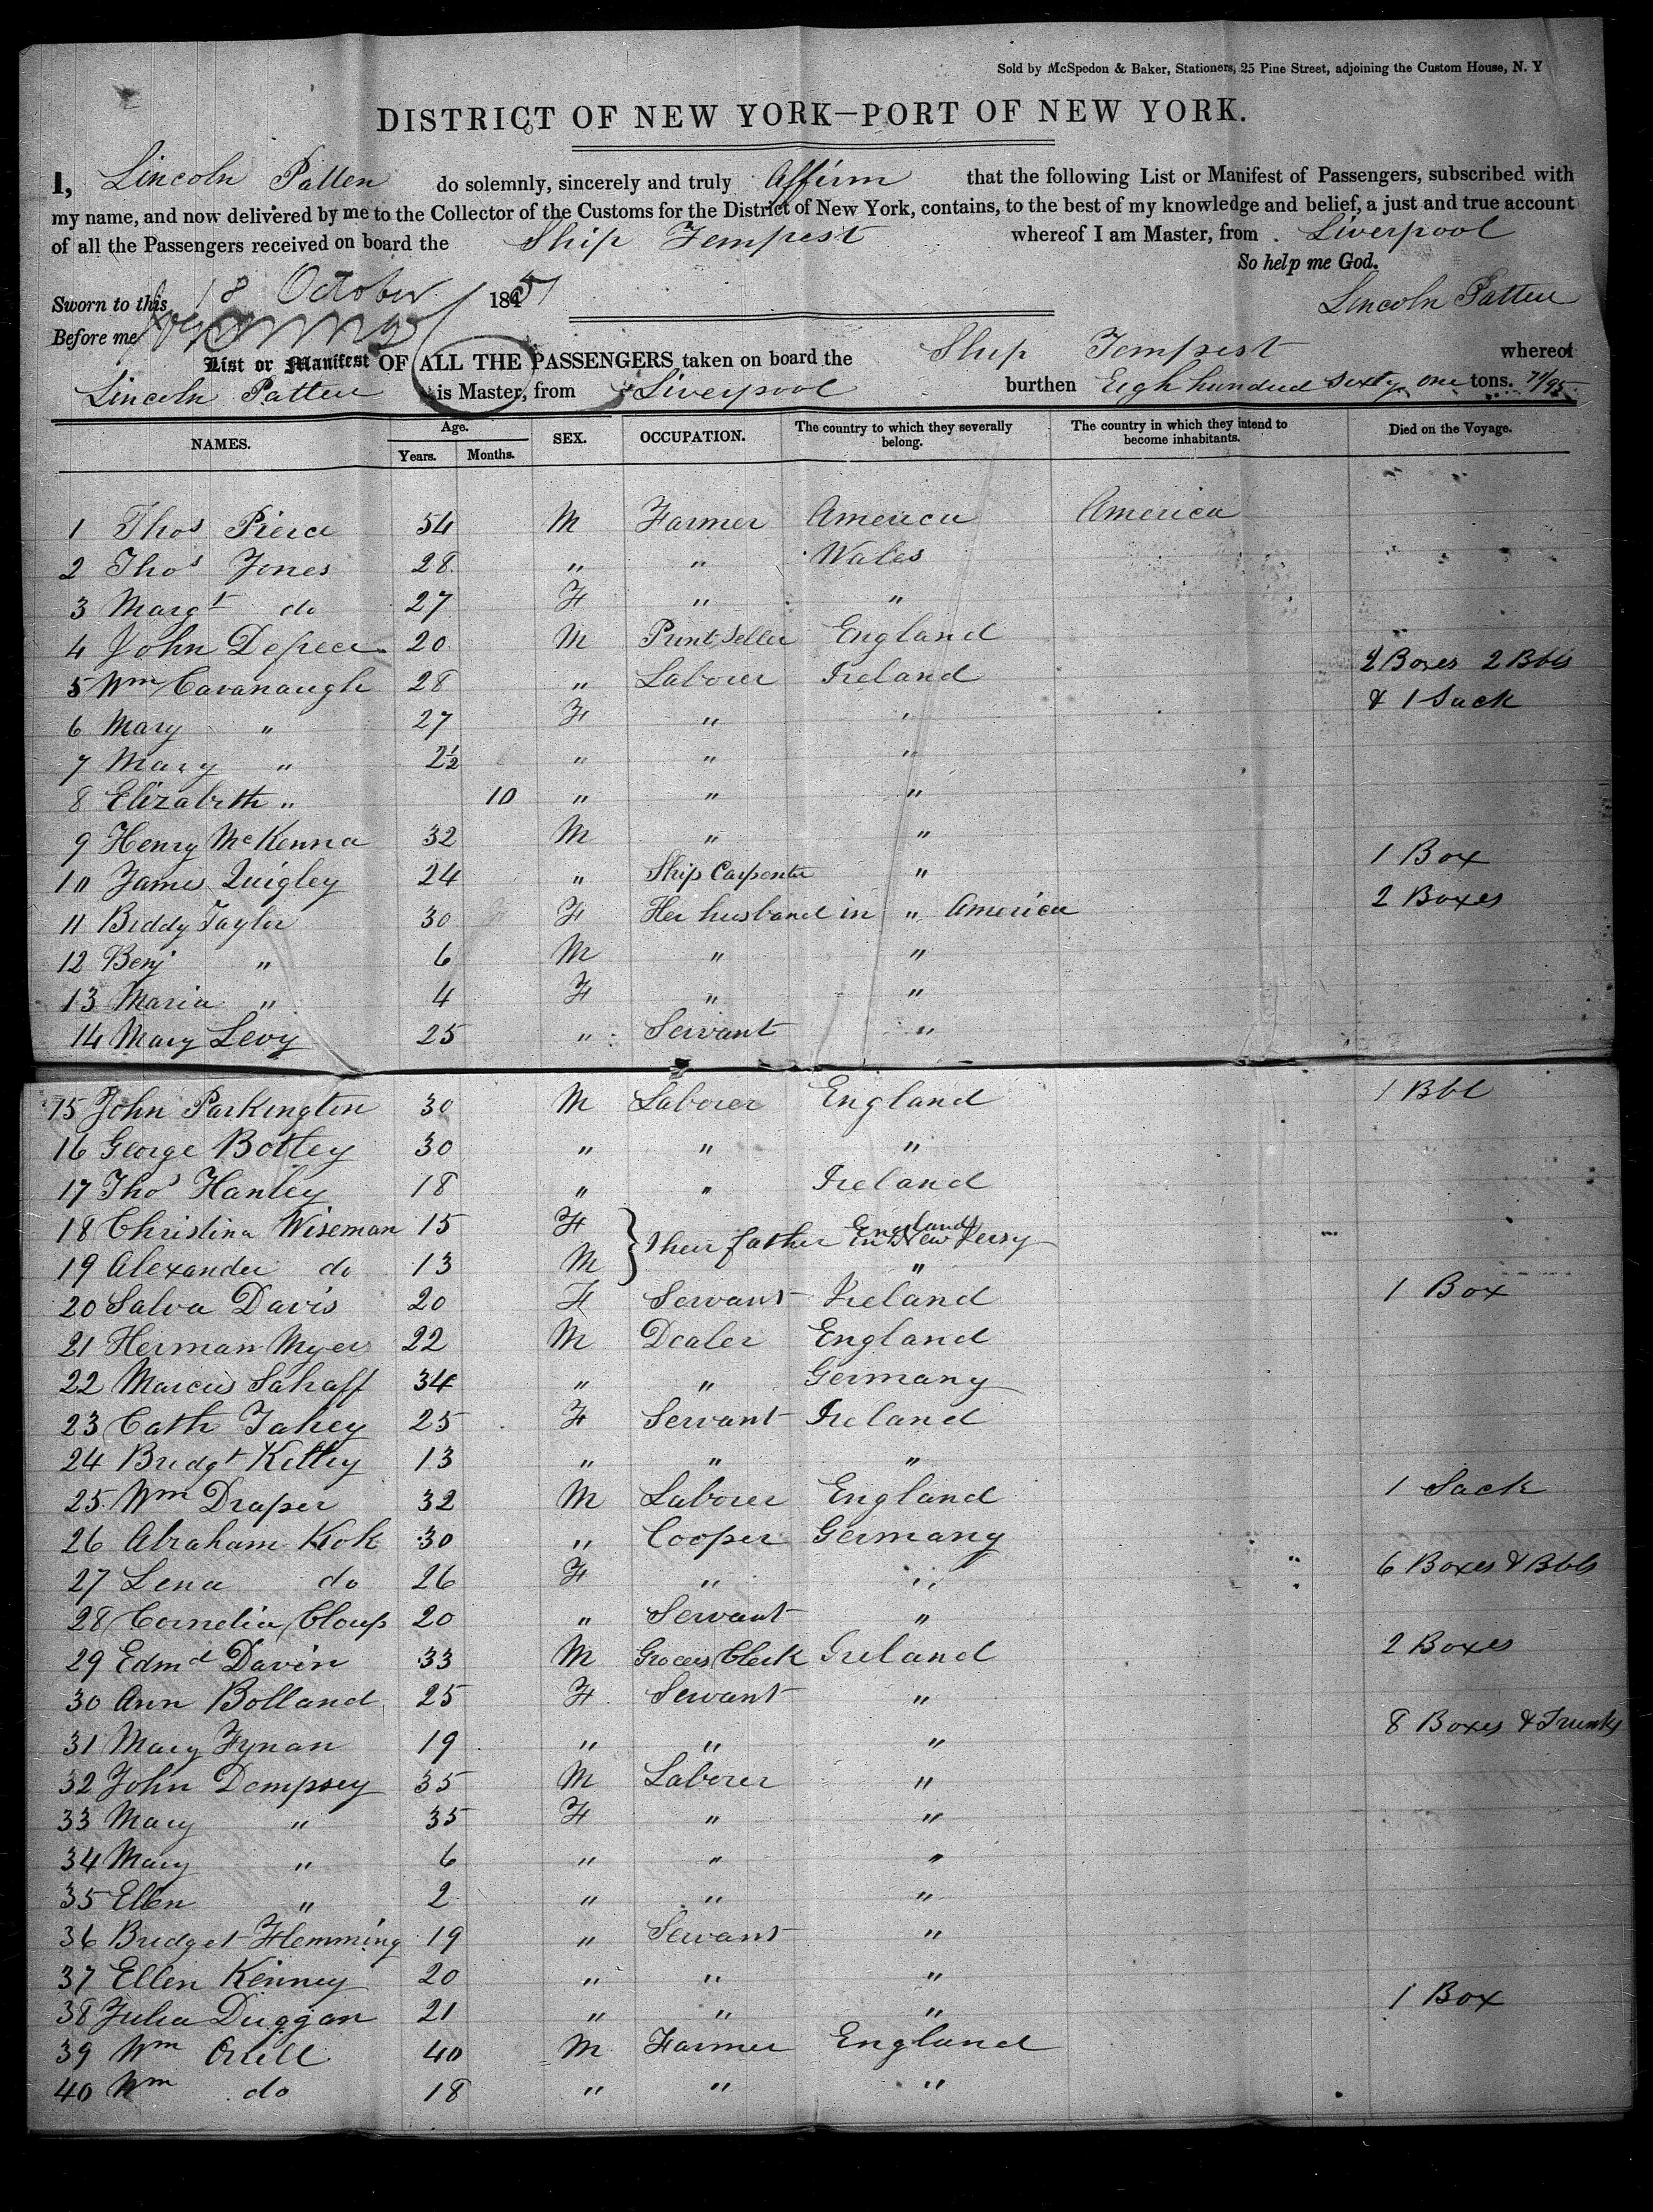 Sold by McSpedon & Baker, Stationers, 25 Pine Street, adjoining the Custom House, N. Y
DISTRICT OF NEW YORK—PORT OF NEW YORK.
I, Lincoln Patten do solemnly, sincerely and truly Affirm that the following List or Manifest of Passengers, subscribed with
my name, and now delivered by me to the Collector of the Customs for the District of New York, contains, to the best of my knowledge and belief, a just and true account
of all the Passengers received on board the Ship Tempest whereof I am Master, from Liverpool
So help me God.
Sworn to this 18 October 1851
Lincoln Patten
Before me
List or Manifest OF ALL THE PASSENGERS taken on board the Ship Tempest whereof
Lincoln Patten is Master, from Liverpool burthen Eigh hundred Sixty one tons. 71/95
NAMES. Age. Years. Months. SEX. OCCUPATION. The country to which they severally belong. The country in which they intend to become inhabitants. Died on the Voyage.
1 Thos Pierce 54 M Farmer America America
2 Thos Jones 28 " " Wales
3 Margt do 27 F " "
4 John 20 M Print Seller England
5 Wm Cavanaugh 28 " Laborer Ireland 2 Boxes 2 Bbls
6 Mary " 27 F " " & 1 Sack
7 Mary " 2½ " " "
8 Elizabeth " 10 " " "
9 Henry McKenna 32 M " "
10 James Quigley 24 " Ship Carpenter " 1 Box
11 Biddy Taylor 30 F Her husband in " America 2 Boxes
12 Benj " 6 M " "
13 Maria " 4 F " "
14 Mary Levy 25 " Servant "
15 John Parkington 30 M Laborer England 1 Bbl
16 George Botley 30 " " "
17 Thos Hanley 18 " " Ireland
18 Christina Wiseman 15 F } Their father in New Jersy England
19 Alexander do 13 M "
20 Salva Davis 20 F Servant Ireland 1 Box
21 Herman Myers 22 M Dealer England
22 Marcus Sahaff 34 " " Germany
23 Cath Fahey 25 F Servant Ireland
24 Bridgt Kelley 13 " " "
25 Wm Draper 32 M Laborer England 1 Sack
26 Abraham Kok 30 " Cooper Germany
27 Lena do 26 F " " 6 Boxes & Bbls
28 Cornelia Cloup 20 " Servant "
29 Edmd Davin 33 M Grocers Clerk Ireland 2 Boxes
30 Ann Bolland 25 F Servant "
31 Mary Fynan 19 " " " 8 Boxes & Trunks
32 John Dempsey 35 M Laborer "
33 Mary " 35 F " "
34 Mary " 6 " " "
35 Ellen " 2 " " "
36 Bridget Flemming 19 " Servant "
37 Ellen Kenney 20 " " "
38 Julia Duggan 21 " " " 1 Box
39 Wm Orill 40 M Farmer England
40 Wm do 18 " " "